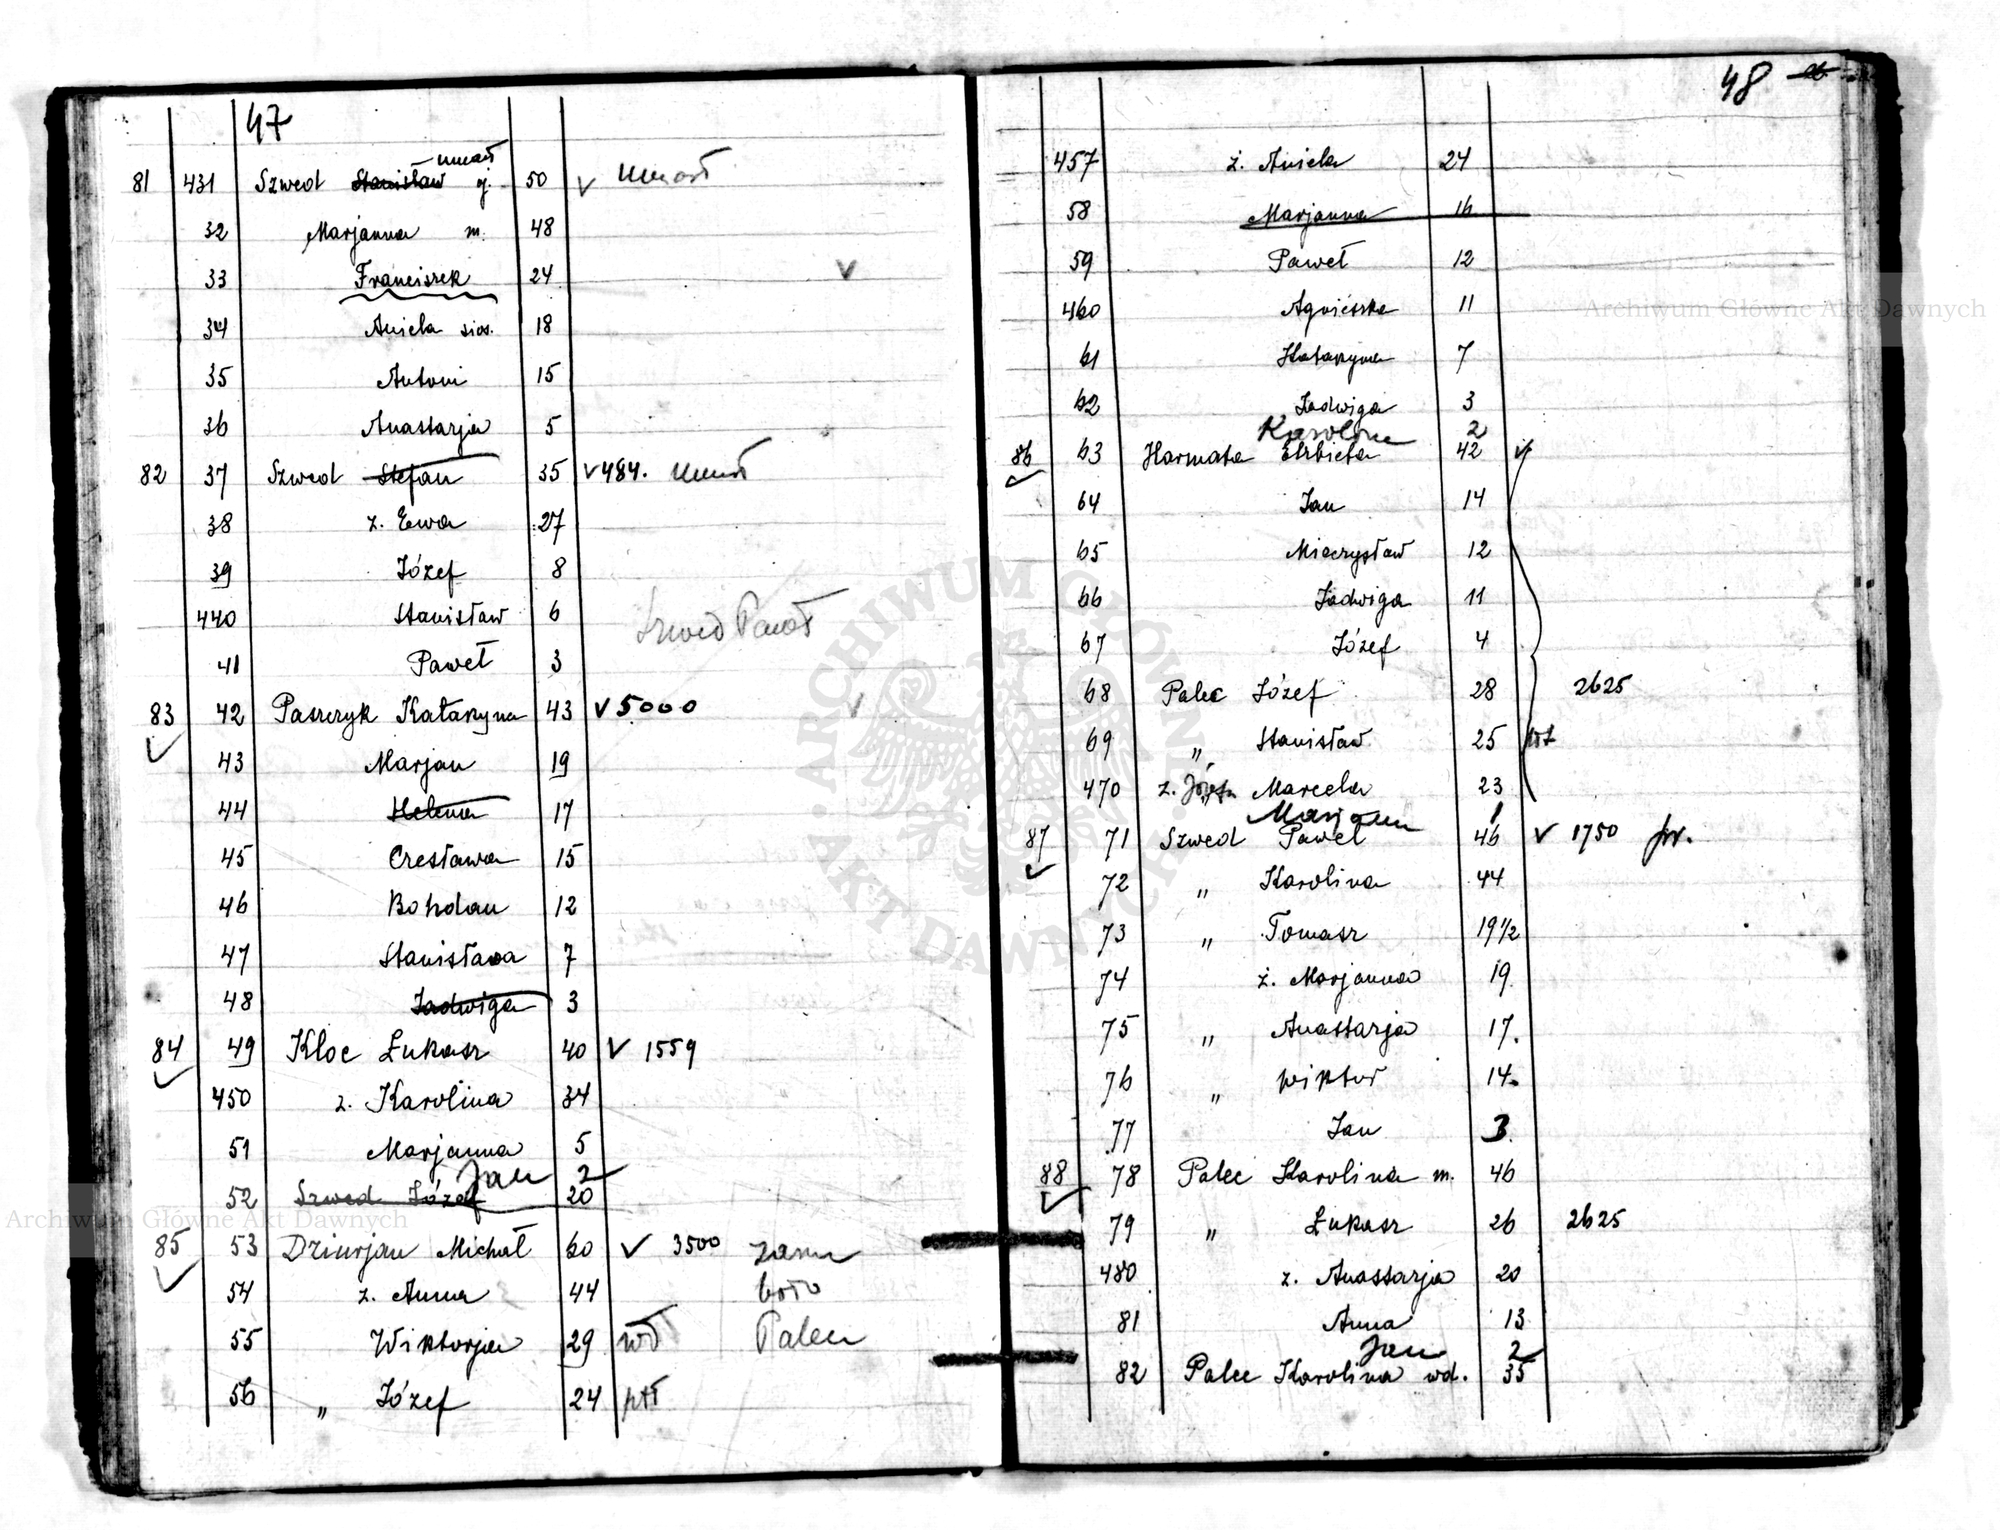 47
umarł
81 431 Szwed Stanisław oj. 50 v umarł
32 Marjanna m. 48
33 Franciszek 24 v
34 Aniela sios. 18
35 Antoni 15
36 Anastazja 5
82 37 Szwed Stefan 35 v 484. umarł
38 z. Ewa 27
39 Józef 8
440 Stanisław 6
Szwed Paweł
41 Paweł 3
83 42 Paszczyk Katarzyna 43 v 5000 v
43 Marjan 19
44 Helena 17
45 Czesława 15
46 Bohdan 12
47 Stanisława 7
48 Jadwiga 3
84 49 Kloc Łukasz 40 v 1559
450 z. Karolina 34
51 Marjanna 5
Jan 2
52 Szwed Józef 20
85 53 Dziurjan Michał 60 v 3500
54 z. Anna 44
55 Wiktorja 29 wd Palec
56 " Józef 24
48
457 ż. Aniela 24
58 Marjanna 16
59 Paweł 12
460 Agnieszka 11
61 Katarzyna 7
62 Jadwiga 3
Karolina 2
86 63 Harmata Elżbieta 42 v
64 Jan 14
65 Mieczysław 12
66 Jadwiga 11
67 Józef 4
68 Palec Józef 28 2625
69 " Stanisław 25
470 z. Józefa Marcela 23
Marjan 1
87 71 Szwed Paweł 46 v 1750
72 " Karolina 44
73 " Tomasz 19 1/2
74 ż. Marjanna 19
75 " Anastazja 17.
76 " Wiktor 14.
77 Jan 3
88 78 Palec Karolina m. 46
79 " Łukasz 26 2625
480 z. Anastazja 20
81 Anna 13
Jan 2
82 Palec Karolina wd. 35
Archiwum Główne Akt Dawnych
Archiwum Główne Akt Dawnych
ARCHIWUM GŁÓWNE AKT DAWNYCH